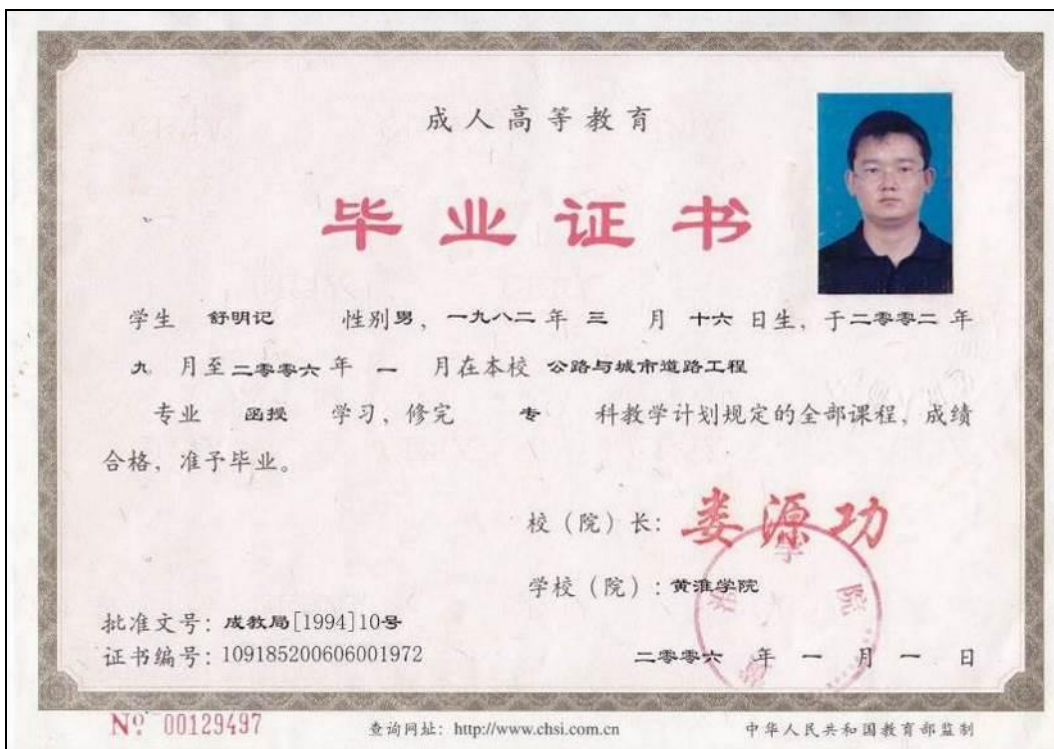 成人高等教育
毕业证书
学生 舒明记 性别男，一九八二年 三 月 十六 日生，于二零零二 年
九 月至二零零六 年 一 月在本校 公路与城市道路工程
专业 函授 学习，修完 专 科教学计划规定的全部课程，成绩
合格，准予毕业。
校（院）长：娄源功
学校（院）：黄淮学院
批准文号：成教局[1994]10号
证书编号：109185200606001972
二零零六 年 一 月 一 日
№ 00129497
查询网址：http://www.chsi.com.cn
中华人民共和国教育部监制